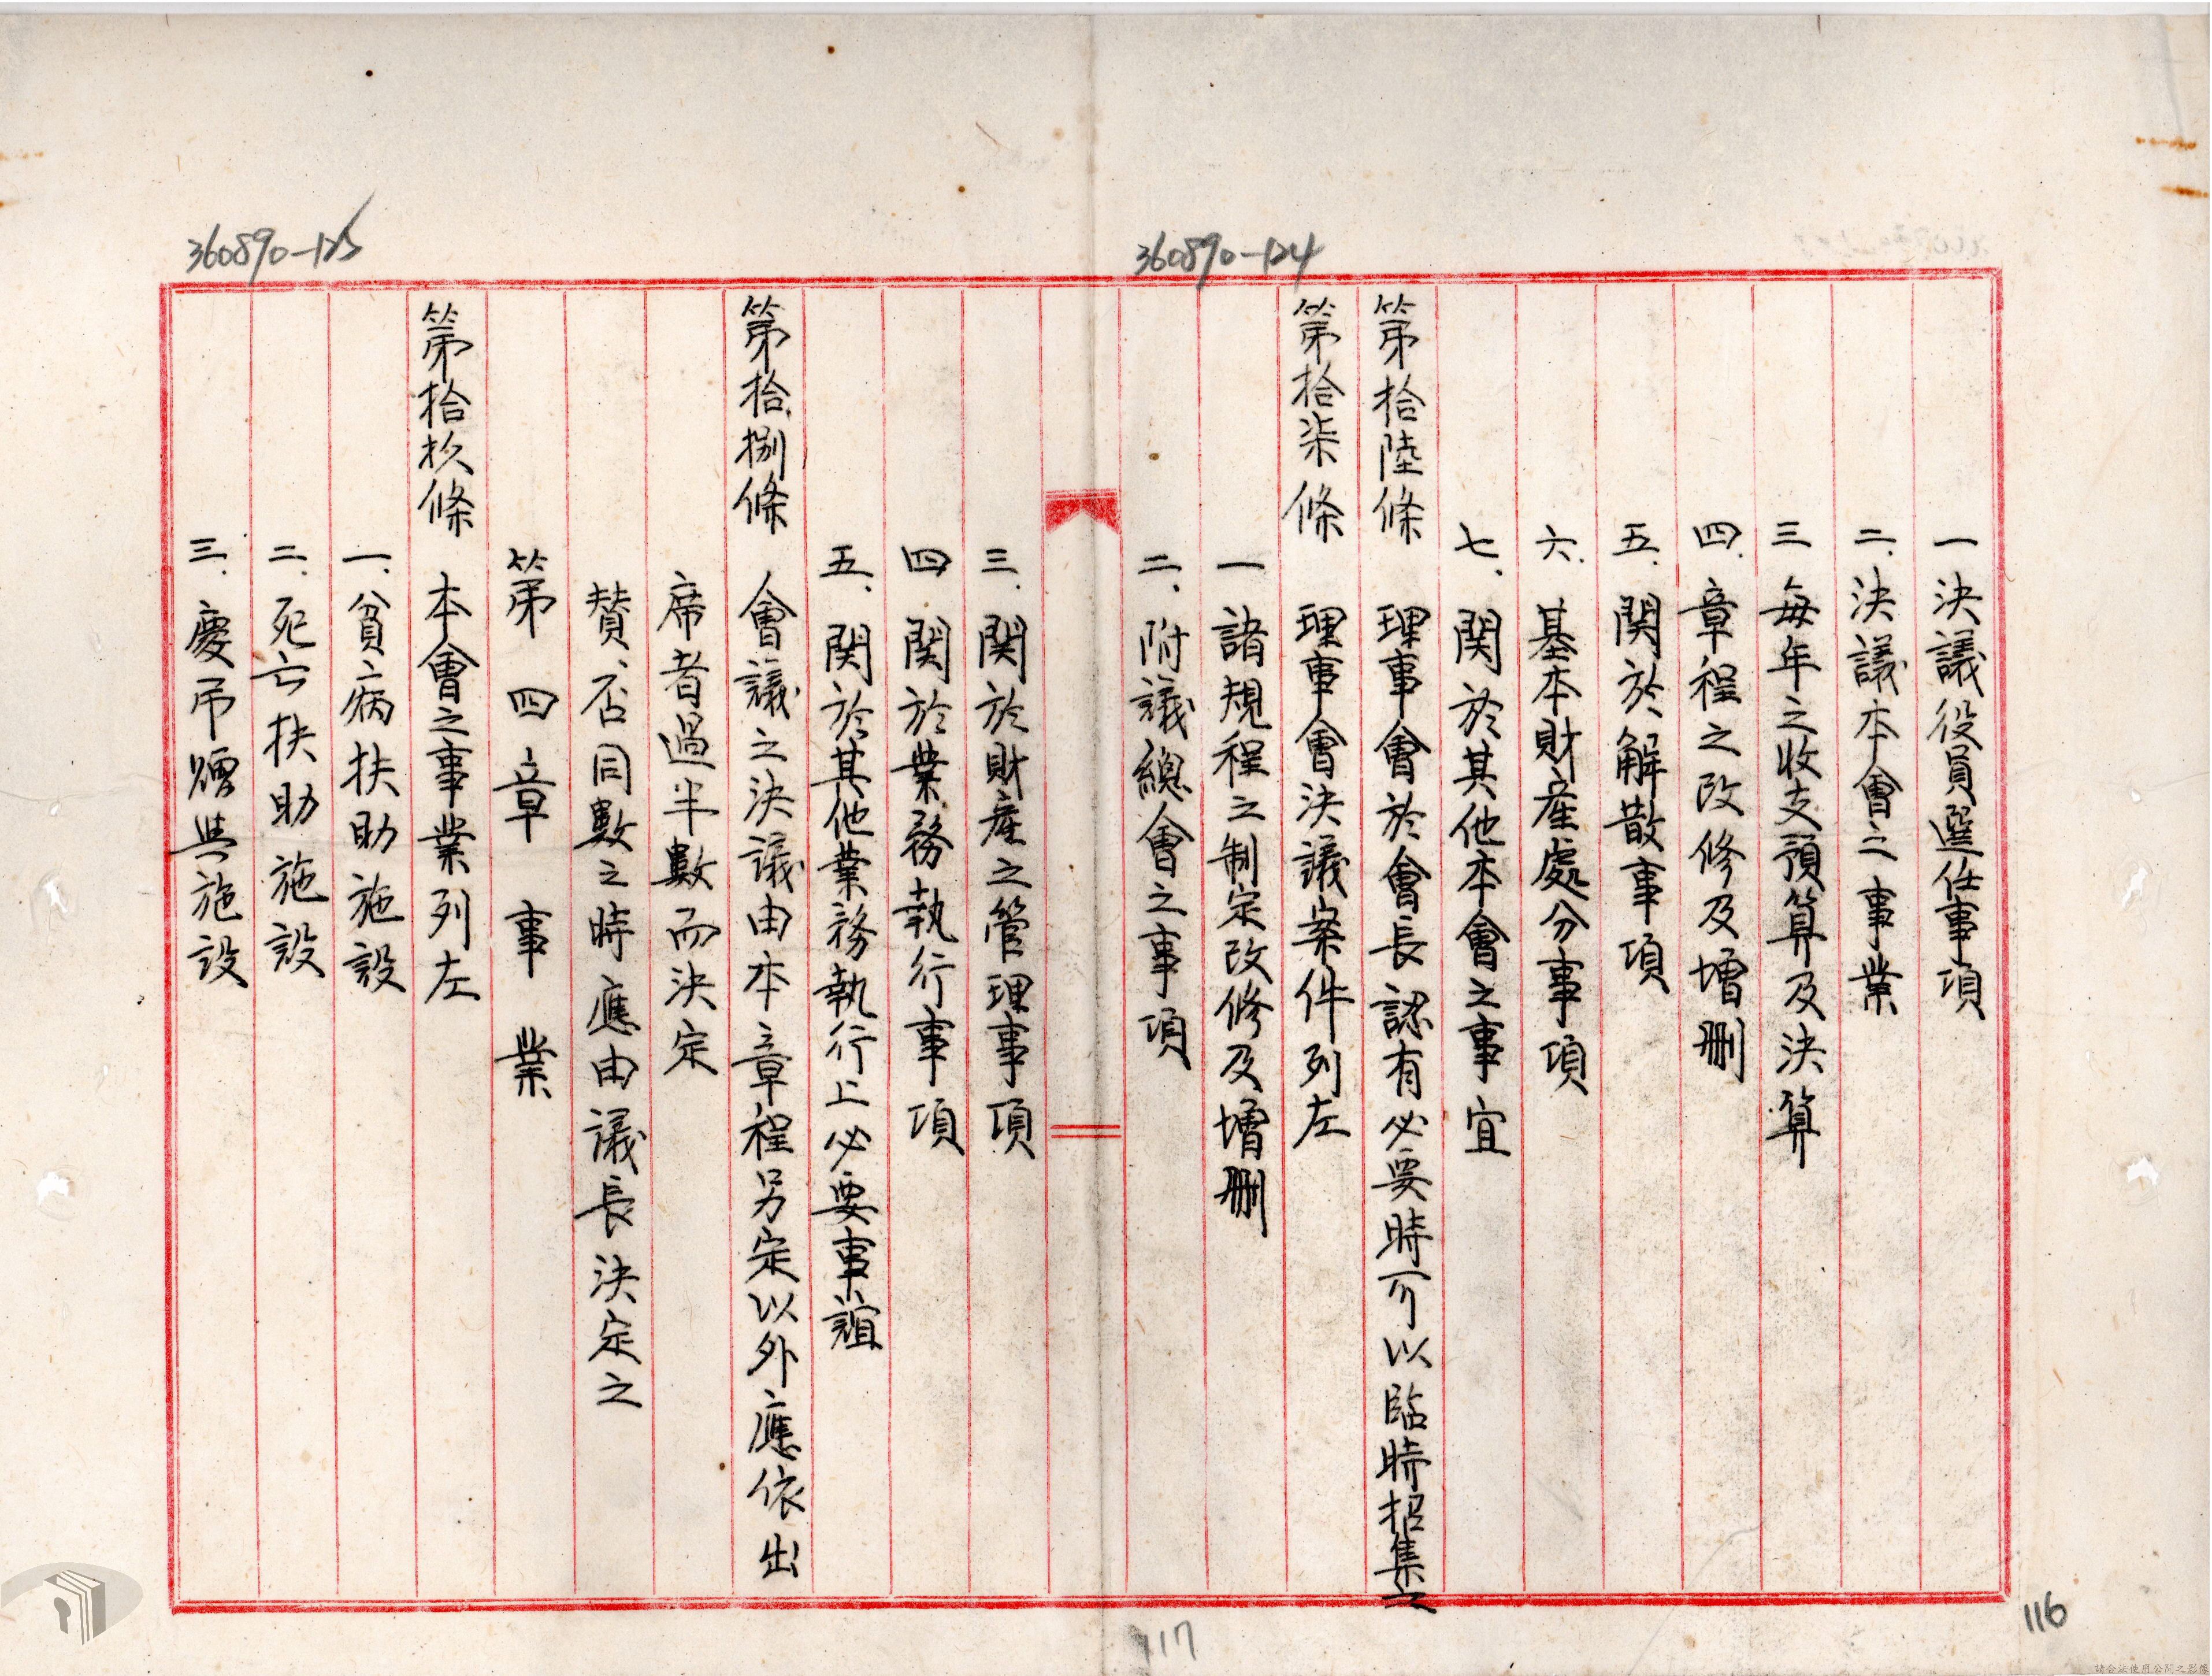 360890-124
一 決議役員選任事項
二、決議本會之事業
三 每年之收支預算及決算
四、章程之改修及增刪
五、関於解散事項
六、基本財產處分事項
七、関於其他本會之事宜
第拾陸條 理事會於會長認有必要時可以臨時招集之
第拾柒條 理事會決議案件列左
一 諸規程之制定改修及增刪
二、附議總會之事項
360890-125
三、関於財產之管理事項
四 関於業務執行事項
五、関於其他業務執行上必要事誼
第拾捌條 會議之決議由本章程另定以外應依出
席者過半數而決定
賛否同數之時應由議長決定之
第四章 事業
第拾玖條 本會之事業列左
一、貧病扶助施設
二、死亡扶助施設
三、慶弔贈與施設
116
117
請合法使用公開之影像